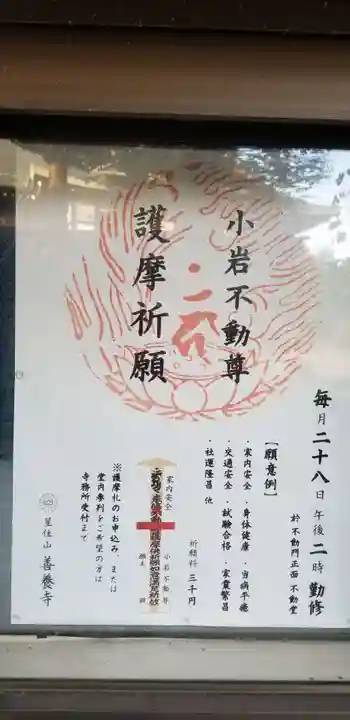 小岩不動尊
護摩祈願
毎月二十八日午後二時勤修
於 不動門正面 不動堂
【願意例】
・家内安全・身体健康・当病平癒
・交通安全・試験合格・家業繁昌
・社運隆昌 他
祈願料 三千円
家内安全
小岩不動尊
願主
※護摩札のお申込み、または
堂内参列をご希望の方は
寺務所受付まで
星住山 善養寺